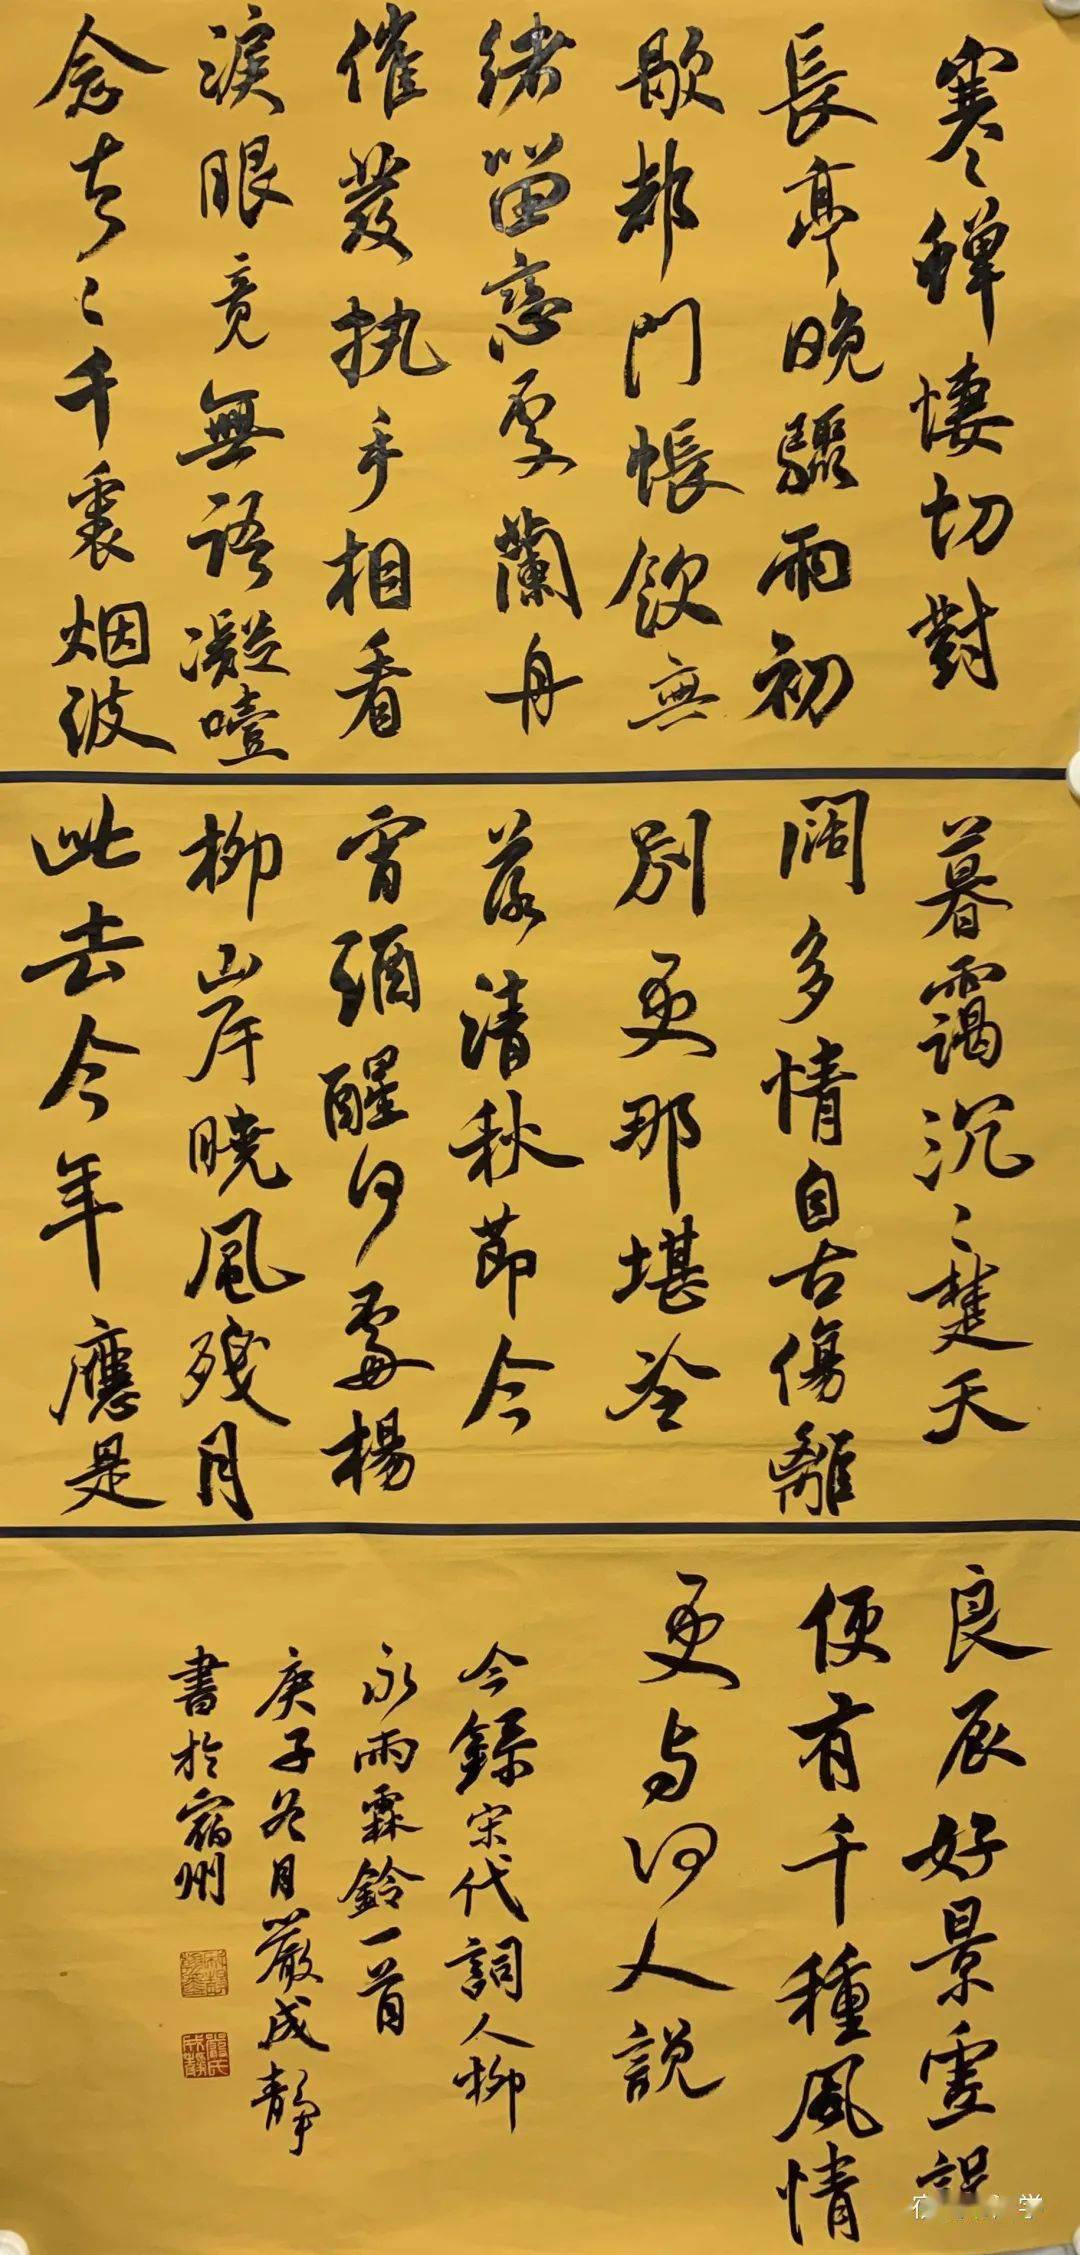 寒蟬悽切對
長亭晚驟雨初
歇都門帳飲無
緒留戀處蘭舟
催發執手相看
淚眼竟無語凝噎
念去々千裏烟波
暮靄沉々楚天
闊多情自古傷離
別更那堪冷
落清秋節今
宵酒醒何處楊
柳岸曉風殘月
此去今年應是
良辰好景虛設
便有千種風情
更与何人說
今錄宋代詞人柳
永雨霖鈴一首
庚子冬月嚴成靜
書於宿州
学